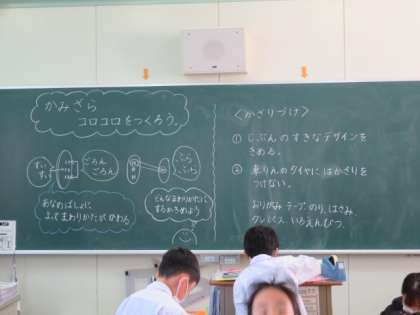 かみざら
コロコロをつくろう。
すい
すい
ごろん
ごろん
ぶら
ぶら
あなのばしょに
よってまわりかたがかわる
どんなまわりかたに
するかきめよう
<かざりづけ>
① じぶんのすきなデザインを
きめる。
② 車りんのタイヤにはかざりを
つけない。
おりがみ テープ のり、はさみ
クレパス いろえんぴつ